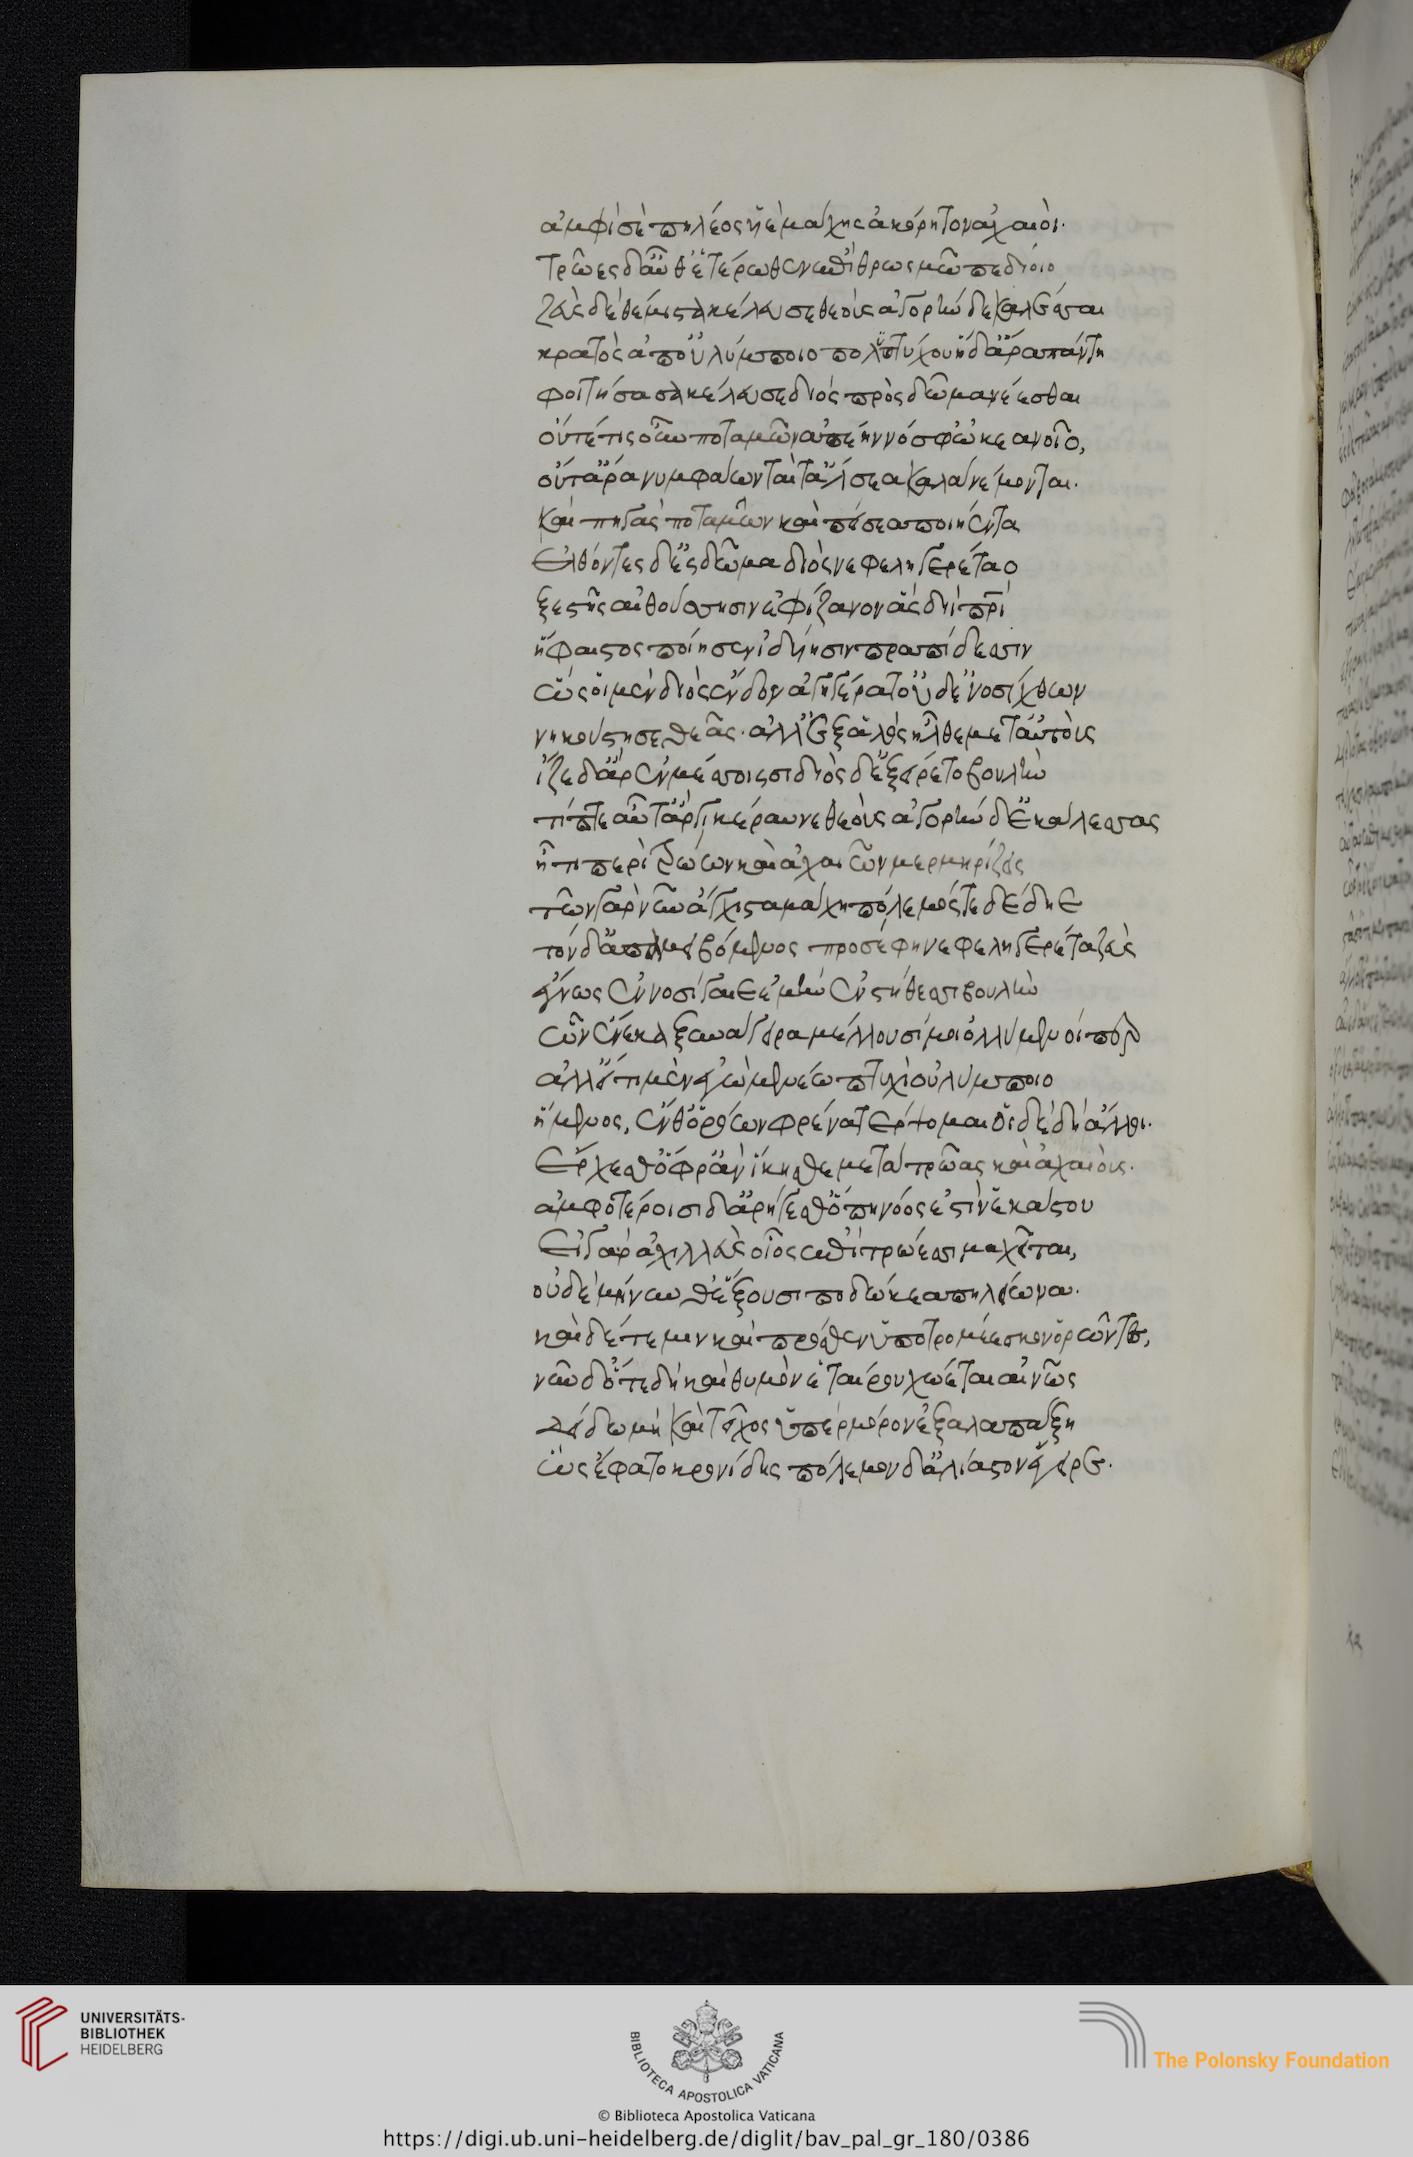 ἀμφὶ σὲ πηλέος υἱὲ μάχης ἀκόρητον ἀχαιοί.
Τρῶες δ' αὖθ' ἑτέρωθεν ἐπὶ θρωσμῶ πεδίοιο
Ζεὺς δὲ θέμιστα κέλευσε θεοὺς ἀγορὴν δὲ καλέσσαι
κρατὸς ἀπ' οὐλύμποιο πολυπτύχου ἡ δ' ἄρα πάντη
φοιτήσασα κέλευσε διὸς πρὸς δῶμα νέεσθαι
οὔτέ τις οὖν ποταμῶν ἀπέην νόσφ' ὠκεανοῖο,
οὔτ' ἄρα νυμφάων ταὶ τ' ἄλσεα καλὰ νέμονται.
καὶ πηγὰς ποταμῶν καὶ πίσεα ποιήεντα
Ἐλθόντες δ' ἐς δῶμα διὸς νεφεληγερέταο
ξεστῆς αἰθούσησιν ἐφίζανον ἃς διὶ πρὶ
ἥφαιστος ποίησεν ἰδυίησιν πραπίδεσσιν
ὣς οἱ μὲν διὸς ἔνδον ἀγηγέρατ' οὐδ' ἐνοσίχθων
νηκούστησε θεᾶς. ἀλλ' ἐξ ἁλὸς ἦλθε μετ' αὐτοὺς
ἷζε δ' ἄρ' ἐν μέσσοισι διὸς δ' ἐξείρετο βουλὴν
τίπτ' αὖτ' ἀργικέραυνε θεοὺς ἀγορὴν δ' ἐκάλεσσας
ἦ τι περὶ τρώων καὶ ἀχαιῶν μερμηρίζεις
τῶν γὰρ νῦν ἄγχιστα μάχη πόλεμός τε δέδηε
τὸν δ' ἀπαμειβόμενος προσέφη νεφεληγερέτα ζεὺς
ἔγνως ἐννοσίγαιε ἐμὴν ἐν στήθεσσι βουλὴν
ὧν ἕνεκα ξυνάγειρα μέλλουσί μοι ὀλλύμενοί περ
ἀλλ' ἤτοι μὲν ἐγὼ μενέω πτυχὶ οὐλύμποιο
ἥμενος, ἔνθ' ὁρόων φρένα τέρψομαι οἱ δὲ δὴ ἄλλοι.
Ἔρχεσθ' ὄφρ' ἂν ἵκησθε μετὰ τρῶας καὶ ἀχαιούς.
ἀμφοτέροισι δ' ἀρήγεθ' ὅπη νόος ἐστὶν ἑκάστου
Εἰ γὰρ ἀχιλλεὺς οἶος ἐπὶ τρώεσσι μαχεῖται,
οὐδὲ μίνυνθ' ἕξουσι ποδώκεα πηλείωνα.
καὶ δέ τε μιν καὶ πρόσθεν ὑποτρομέεσκον ὁρῶντες,
νῦν δ' ὅτε δὴ καὶ θυμὸν ἑταίρου χώεται αἰνῶς
δείδω μὴ καὶ τεῖχος ὑπέρμορον ἐξαλαπάξη
ὣς ἔφατο κρονίδης πόλεμον δ' ἀλίαστον ἔγειρε.
UNIVERSITÄTS-
BIBLIOTHEK
HEIDELBERG
BIBLIOTECA APOSTOLICA VATICANA
The Polonsky Foundation
© Biblioteca Apostolica Vaticana
https://digi.ub.uni-heidelberg.de/diglit/bav_pal_gr_180/0386